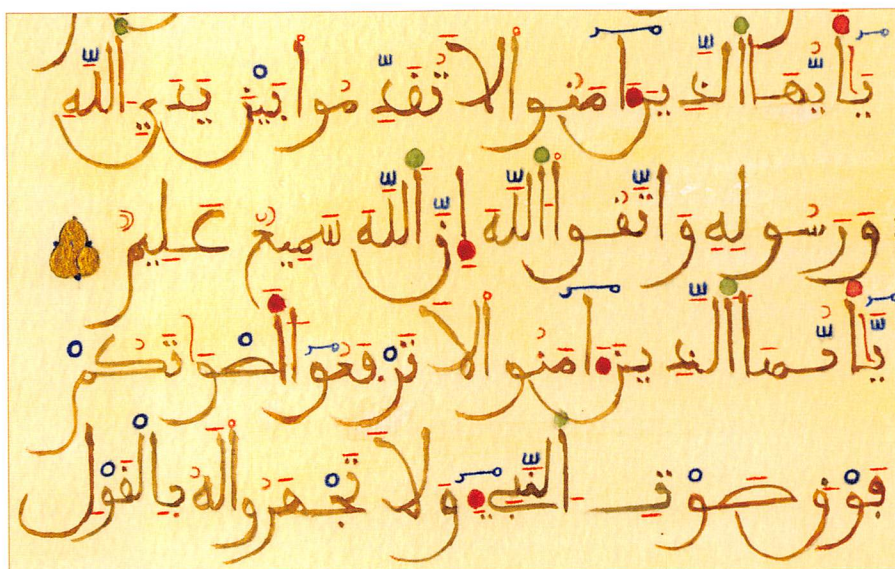 يَا أَيُّهَا الَّذِينَ آمَنُوا لَا تُقَدِّمُوا بَيْنَ يَدَيِ اللَّهِ
وَرَسُولِهِ وَاتَّقُوا اللَّهَ إِنَّ اللَّهَ سَمِيعٌ عَلِيمٌ
يَا أَيُّهَا الَّذِينَ آمَنُوا لَا تَرْفَعُوا أَصْوَاتَكُمْ
فَوْقَ صَوْتِ النَّبِيءِ وَلَا تَجْهَرُوا لَهُ بِالْقَوْلِ